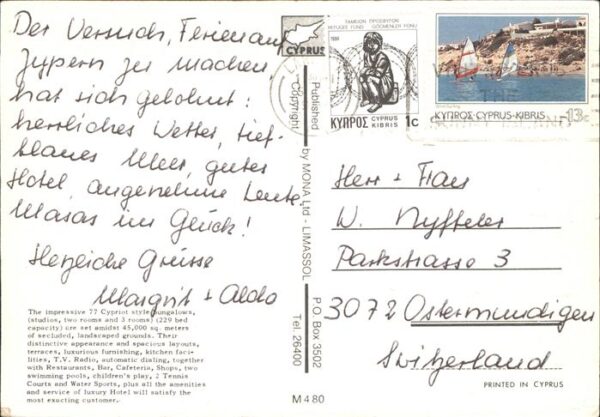 Der Versuch, Ferien auf
Zypern zu machen
hat sich gelohnt:
herrliches Wetter, tief-
blaues Meer, gutes
Hotel, angenehme Leute,
Masas im Glück!
Herzliche Grüsse
Margrit + Aldo
The impressive 77 Cypriot style bungalows,
(studios, two rooms and 3 rooms) (229 bed
capacity) are set amidst 45,000 sq. meters
of secluded, landscaped grounds. Their
distinctive appearance and spacious layouts,
terraces, luxurious furnishing, kitchen faci-
lities, T.V. Radio, automatic dialing, together
with Restaurants, Bar, Cafeteria, Shops, two
swimming pools, children's play, 2 Tennis
Courts and Water Sports, plus all the amenities
and service of luxury Hotel will satisfy the
most exacting customer.
CYPRUS
Copyright
Published by MONA Ltd - LIMASSOL P.O. Box 3502
Tel. 26400
M480
REFUGEE FUND GÖÇMENLER FONU
ΚΥΠΡΟΣ CYPRUS KIBRIS 1c
ΚΥΠΡΟΣ-CYPRUS-KIBRIS 13c
Herr + Frau
W. Nyffeler
Parkstrasse 3
3072 Ostermundigen
Switzerland
PRINTED IN CYPRUS